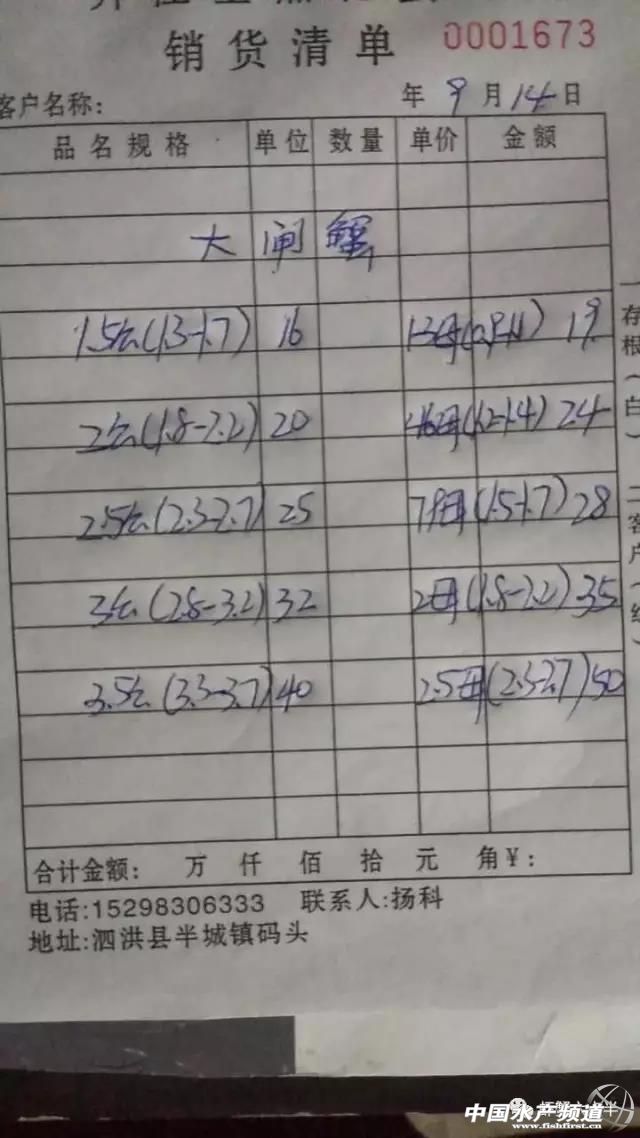 销货清单 0001673
客户名称: 年 9 月 14 日
品名规格 单位 数量 单价 金额
大闸蟹
1.5公(1.3-1.7) 16 1.3母(0.9-1.1) 19
2公(1.8-2.2) 20 1.6母(1.2-1.4) 24
2.5公(2.3-2.7) 25 母(1.5-1.7) 28
3公(2.8-3.2) 32 2母(1.8-2.2) 35
3.5公(3.3-3.7) 40 2.5母(2.3-2.7) 50
合计金额: 万 仟 佰 拾 元 角 ¥:
电话:15298306333 联系人:扬科
地址:泗洪县半城镇码头
存根(白) 二客户(红)
中国水产频道
www.fishfirst.cn